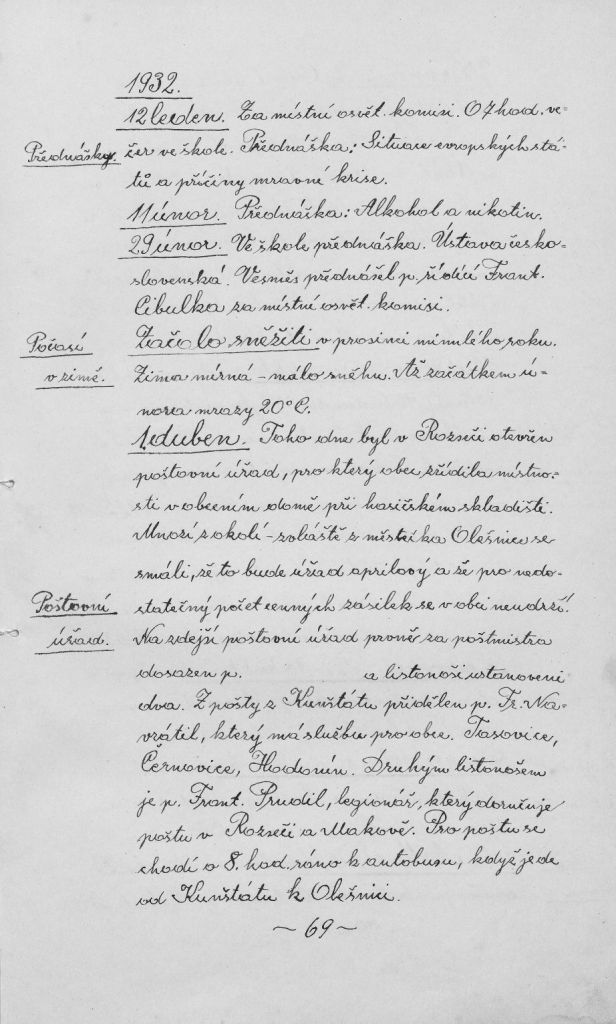 1932.
12 leden. Za místní osvět. komisi. O 7 hod. ve-
Přednášky. čer ve škole. Přednáška: Situace evropských stá-
tů a příčiny mravné krise.
11 únor. Přednáška: Alkohol a nikotin.
29 únor. Ve škole přednáška. Ústava česko-
slovenská. Vesměs přednášel p. řídící Frant.
Cibulka za místní osvět. komisi.
Počasí Začalo sněžiti v prosinci minulého roku.
v zimě. Zima mírná - málo sněhu. Až začátkem ú-
nora mrazy 20° C.
1. duben. Toho dne byl v Rozseči otevřen
poštovní úřad, pro který obec zřídila místno-
sti v obecním domě při hasičském skladišti.
Mnozí z okolí - zvláště z městečka Olešnice se
smáli, že to bude úřad aprilový a že pro nedo-
Poštovní statečný počet cenných zásilek se v obci neudrží.
úřad. Na zdejší poštovní úřad prvně za poštmistra
dosazen p. a listonoši ustanoveni
dva. Z pošty z Kunštátu přidělen p. Fr. Na-
vrátil, který má službu pro obce. Tasovice,
Černovice, Hodonín. Druhým listonošem
je p. Frant. Prudil, legionář, který doručuje
poštu v Rozseči a Makově. Pro poštu se
chodí o 8. hod. ráno k autobusu, když jede
od Kunštátu k Olešnici.
~ 69 ~